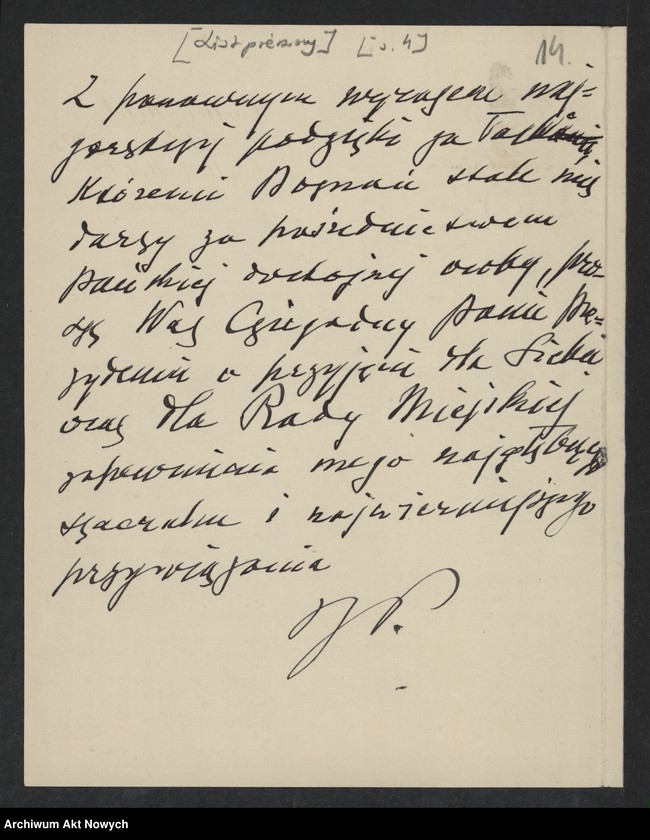 [List prezny] [s. 4]
14.
Z ponownym wyrazem naj-
gorętszej podzięki za łaski
któremi Poznań stale mię
darzy za pośrednictwem
Pańskiej dostojnej osoby, pro-
szę Was Czcigodny Panie Pre-
zydencie o przyjęcie dla Siebie
oraz dla Rady Miejskiej
zapewnienia mego najgłębszego
szacunku i najwierniejszego
przywiązania
IJP.
Archiwum Akt Nowych